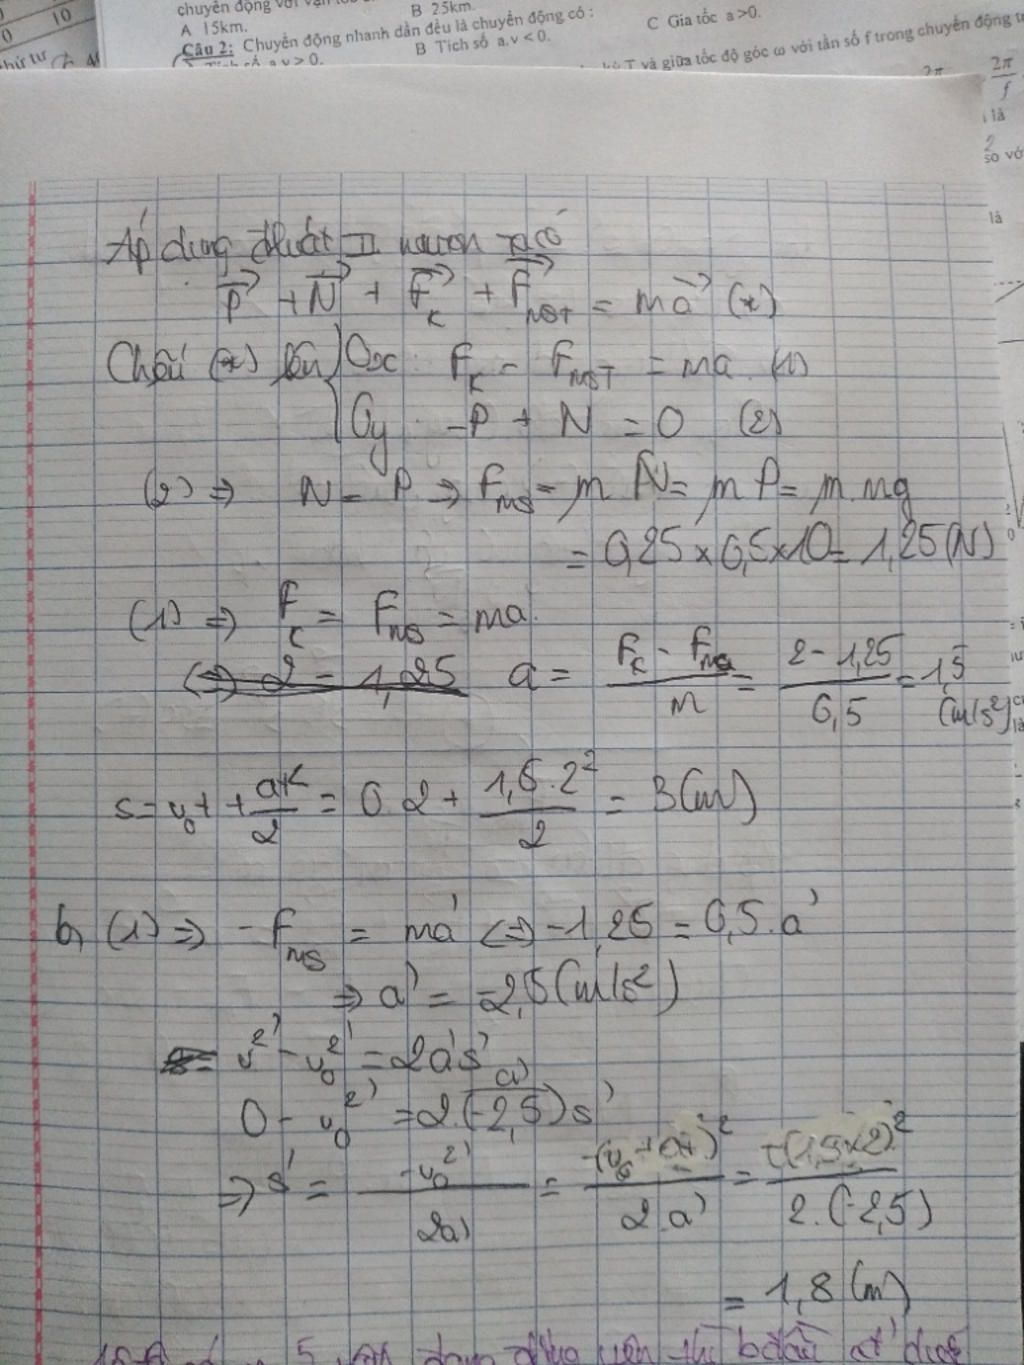 chuyển động với vận
A 15km.
B 25km.
Câu 2: Chuyển động nhanh dần đều là chuyển động có :
C Gia tốc a >0.
B Tích số a.v < 0.
Tích số a.v > 0.
T và giữa tốc độ góc ω với tần số f trong chuyển động
2π/f
là
so vớ
lá
10
thứ tự
Áp dụng đluật II niuton ta có
P⃗ + N⃗ + F⃗k + F⃗msT = ma⃗ (*)
Chiếu (*) lên { Ox: Fk - FmsT = ma (1)
Oy: -P + N = 0 (2)
(2) ⇒ N = P ⇒ Fms = μN = μP = μ.mg
= 0,25 × 0,5 × 10 = 1,25 (N)
(1) ⇒ Fk = Fms = ma
⇔ 2 - 1,25 a = (Fk - Fms)/m = (2 - 1,25)/0,5 = 1,5 (m/s²)
s = v₀t + at²/2 = 0.2 + 1,5.2²/2 = 3(m)
b, (1) ⇒ -Fms = ma' ⇔ -1,25 = 0,5.a'
⇒ a' = -2,5 (m/s²)
v²' - v₀²' = 2a's'
a'
0 - v₀²' = 2.(-2,5)s'
⇒ s' = -v₀²'/2a' = -(v₀ + at)²/2a' = -(1,5×2)²/2.(-2,5)
= 1,8 (m)